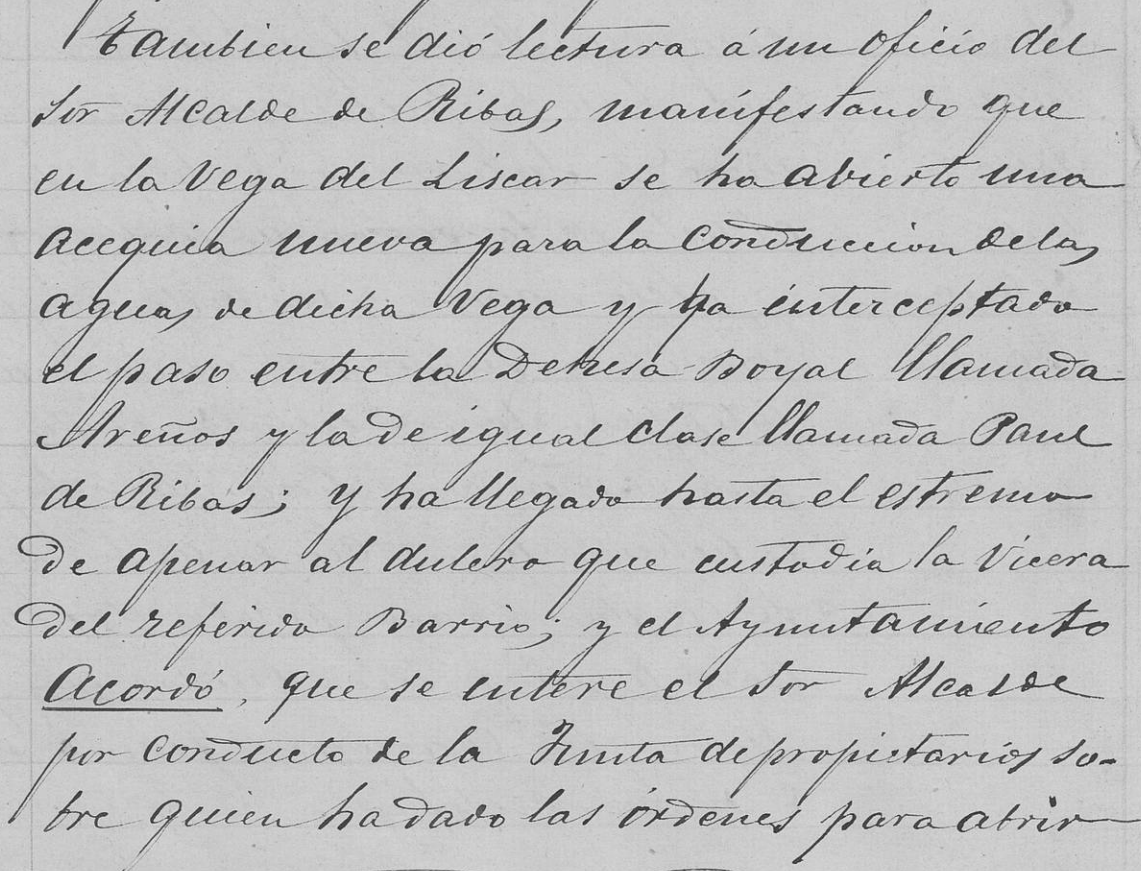 Tambien se dió lectura á un oficio del
Sor Alcalde de Ribas, manifestando que
en la Vega del Liscar se ha abierto una
acequia nueva para la conduccion delas
aguas de dicha Vega y ha interceptado
el paso entre la Dehesa Boyal llamada
Areños y la de igual clase llamada Paul
de Ribas; y ha llegado hasta el estremo
de apenar al dulero que custodia la Vicera
del referido Barrio; y el Ayuntamiento
Acordó, que se entere el Sor Alcalde
por conducto de la Junta de propietarios so-
bre quien ha dado las órdenes para abrir